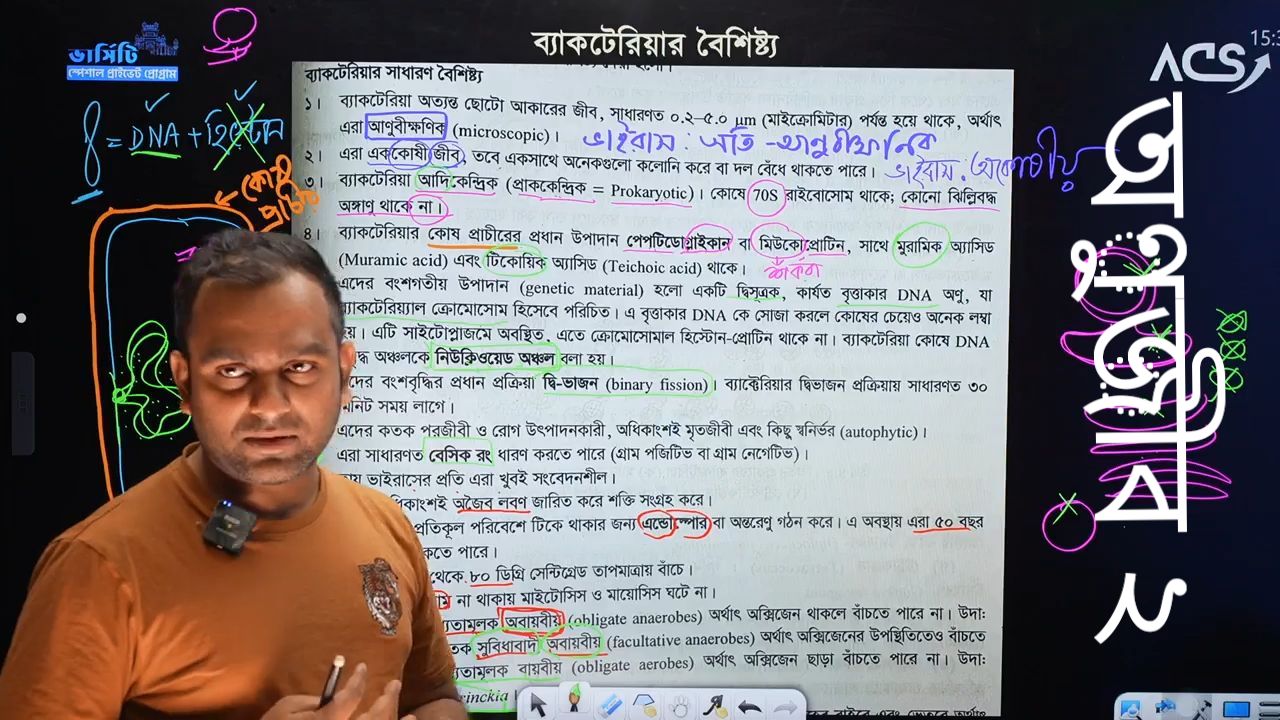 ভার্সিটি
স্পেশাল প্রাইভেট প্রোগ্রাম
ব্যাকটেরিয়ার বৈশিষ্ট্য
ACS
15:3
= DNA + হিস্টোন
ব্যাকটেরিয়ার সাধারণ বৈশিষ্ট্য
১। ব্যাকটেরিয়া অত্যন্ত ছোটো আকারের জীব, সাধারণত ০.২–৫.০ μm (মাইক্রোমিটার) পর্যন্ত হয়ে থাকে, অর্থাৎ
এরা আণুবীক্ষণিক (microscopic)।
ভাইরাস : অতি -আণুবীক্ষণিক
২। এরা এককোষী জীব, তবে একসাথে অনেকগুলো কলোনি করে বা দল বেঁধে থাকতে পারে।
ভাইরাস : অকোষীয়
৩। ব্যাকটেরিয়া আদিকেন্দ্রিক (প্রাককেন্দ্রিক = Prokaryotic)। কোষে 70S রাইবোসোম থাকে; কোনো ঝিল্লিবদ্ধ
অঙ্গাণু থাকে না।
কোষ
প্রাচীর
৪। ব্যাকটেরিয়ার কোষ প্রাচীরের প্রধান উপাদান পেপটিডোগ্লাইকান বা মিউকোপ্রোটিন, সাথে মুরামিক অ্যাসিড
(Muramic acid) এবং টিকোয়িক অ্যাসিড (Teichoic acid) থাকে।
শর্করা
এদের বংশগতীয় উপাদান (genetic material) হলো একটি দ্বিসূত্রক, কার্যত বৃত্তাকার DNA অণু, যা
ব্যাকটেরিয়াল ক্রোমোসোম হিসেবে পরিচিত। এ বৃত্তাকার DNA কে সোজা করলে কোষের চেয়েও অনেক লম্বা
হয়। এটি সাইটোপ্লাজমে অবস্থিত, এতে ক্রোমোসোমাল হিস্টোন-প্রোটিন থাকে না। ব্যাকটেরিয়া কোষে DNA
দ্ধ অঞ্চলকে নিউক্লিওয়েড অঞ্চল বলা হয়।
দের বংশবৃদ্ধির প্রধান প্রক্রিয়া দ্বি-ভাজন (binary fission)। ব্যাক্টেরিয়ার দ্বিভাজন প্রক্রিয়ায় সাধারণত ৩০
মিনিট সময় লাগে।
এদের কতক পরজীবী ও রোগ উৎপাদনকারী, অধিকাংশই মৃতজীবী এবং কিছু স্বনির্ভর (autophytic)।
এরা সাধারণত বেসিক রং ধারণ করতে পারে (গ্রাম পজিটিভ বা গ্রাম নেগেটিভ)।
ভাইরাসের প্রতি এরা খুবই সংবেদনশীল।
ধিকাংশই অজৈব লবণ জারিত করে শক্তি সংগ্রহ করে।
প্রতিকূল পরিবেশে টিকে থাকার জন্য এন্ডোস্পোর বা অন্তরেণু গঠন করে। এ অবস্থায় এরা ৫০ বছর
কতে পারে।
থেকে ৮০ ডিগ্রি সেন্টিগ্রেড তাপমাত্রায় বাঁচে।
না থাকায় মাইটোসিস ও মায়োসিস ঘটে না।
্যতামূলক অবায়বীয় (obligate anaerobes) অর্থাৎ অক্সিজেন থাকলে বাঁচতে পারে না। উদা:
তক সুবিধাবাদী অবায়বীয় (facultative anaerobes) অর্থাৎ অক্সিজেনের উপস্থিতিতেও বাঁচতে
্যতামূলক বায়বীয় (obligate aerobes) অর্থাৎ অক্সিজেন ছাড়া বাঁচতে পারে না। উদা:
rinckia
অণুজীব ২